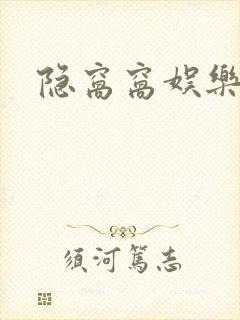 隐窝窝娱樂
须河篤志